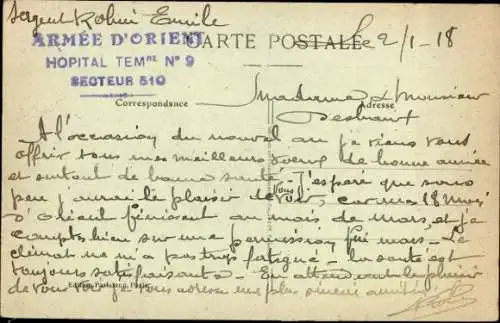 Sergent Robin Emile
ARMÉE D'ORIENT
HOPITAL TEMRE N° 9
SECTEUR 510
CARTE POSTALE
Le 2/1-18
Correspondance
Adresse
Madame & Monsieur
A l'occasion du nouvel an je viens vous
offrir tous mes meilleurs voeux de bonne année
et surtout de bonne santé. J'espère que sous
peu j'aurai le plaisir de vous voir, car mes 18 mois
d'Orient finiront au mois de mars, et je
compte bien sur une permission fin mars. Le
climat ne m'a pas trop fatigué. La santé est
toujours satisfaisante. En attendant le plaisir
de vous voir je vous adresse me plus sincère amitié